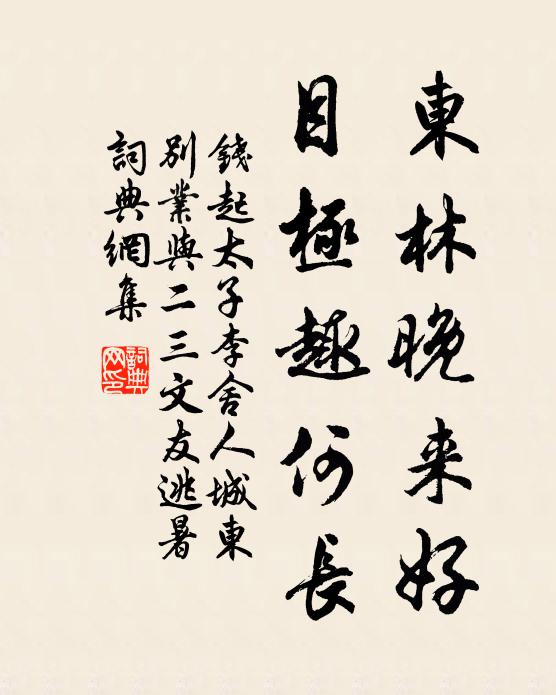 東林晚来好
目極趣何長
錢起太子李舍人城東
別業與二三文友逃暑
詞典網集
詞典
网印